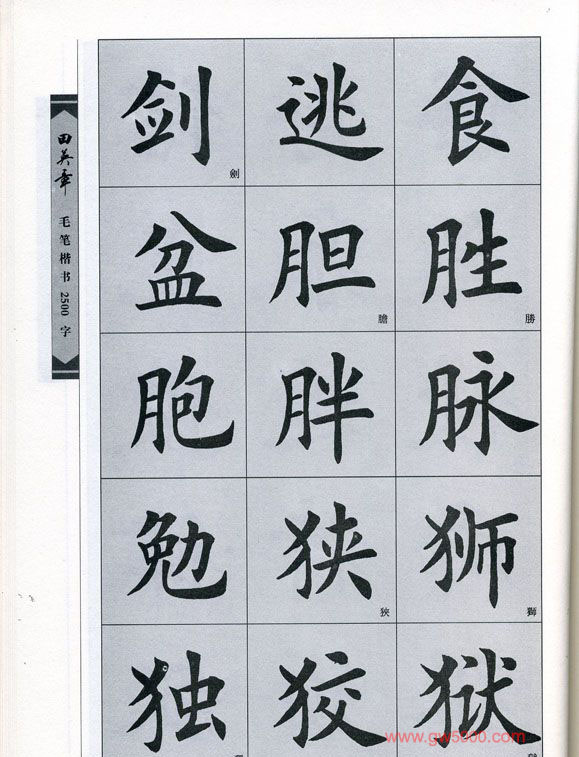 田英章 毛笔楷书2500字
剑 逃 食
劍
盆 胆 胜
膽 勝
胞 胖 脉
勉 狭 狮
狹 獅
独 狡 狱
www.gw5000.com